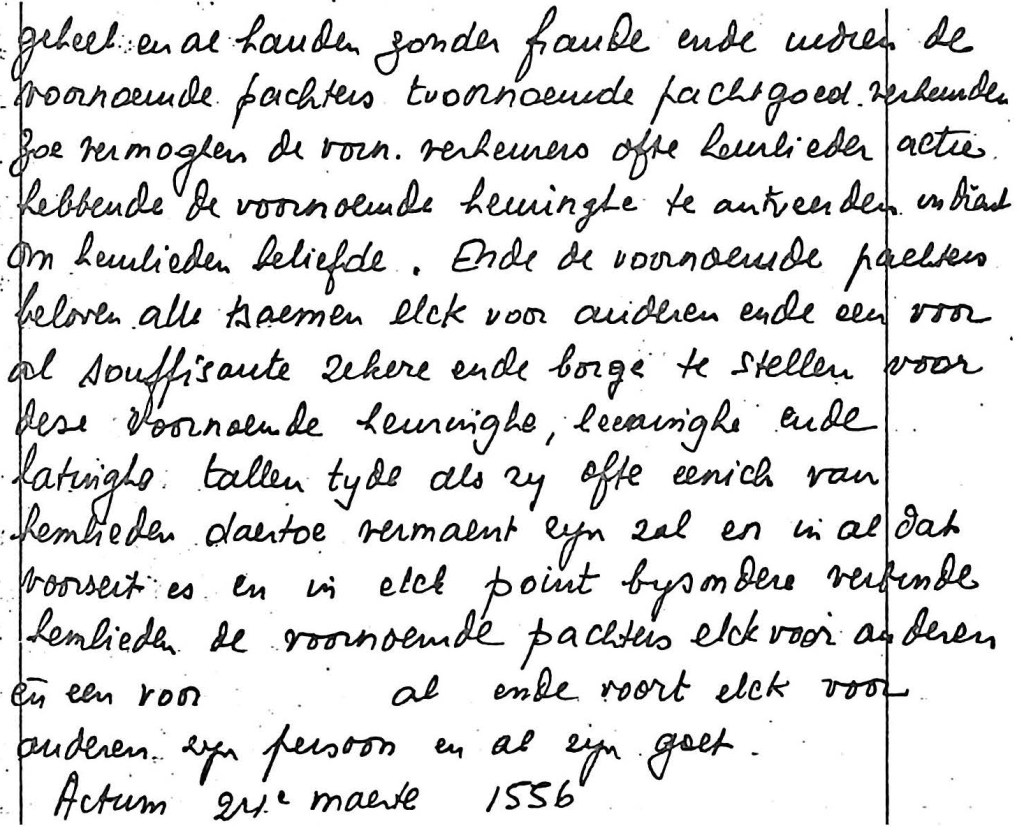 geheel en al houden zonder fraude ende indien de
voornoemde pachters tvoornoemde pachtgoed verheurden
zoe vermoghen de vorn. verheurers ofte heurlieder actie
hebbende de voornoemde heuringhe te antveerden indient
om heurlieden beliefde. Ende de voornoemde pachters
beloven alle tsaemen elck voor anderen ende een voor
al souffisante zekere ende borge te stellen voor
dese voornoemde heuringhe, leeninghe ende
latinghe tallen tyde als zy ofte eenich van
hemlieden daertoe vermaent zyn zal en in al dat
voorseit es en in elck point bysondere verbinde
hemlieden de voornoemde pachters elck voor anderen
en een voor al ende voort elck voor
anderen zyn persoon en al zyn goet.
Actum maerte 1556